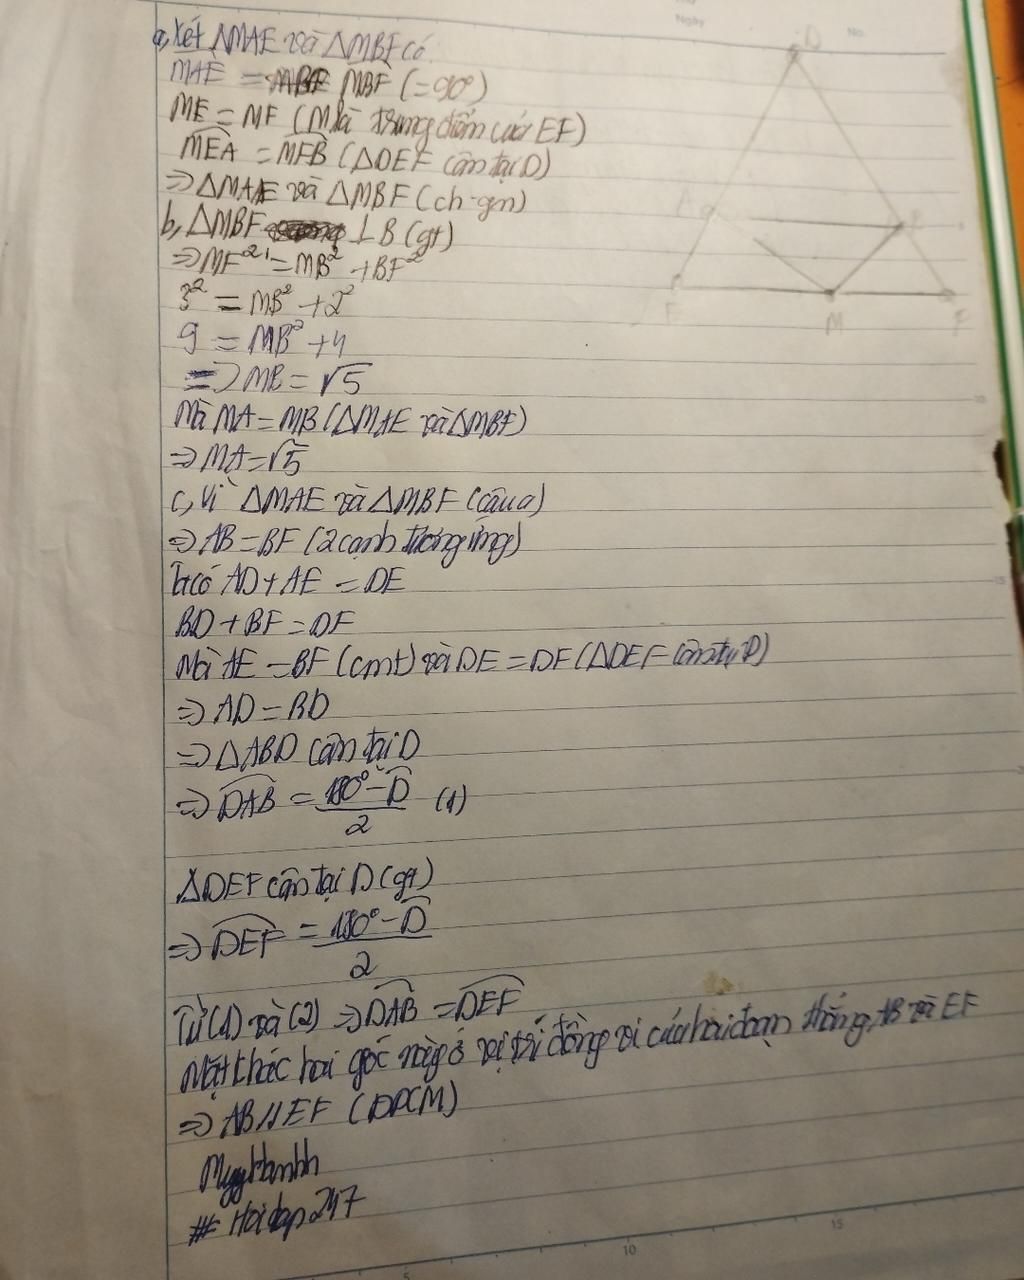 Ngày
No.
a, Xét △MAE và △MBF có
MAE = MBF (=90°)
ME = MF (M là trung điểm của EF)
MEA = MFB (△DEF cân tại D)
=> △MAE và △MBF (ch-gn)
b, △MBF ⊥ B (gt)
=> MF² = MB² + BF²
3² = MB² + 2²
9 = MB² + 4
=> MB = √5
Mà MA = MB (△MAE và △MBF)
=> MA = √5
c, Vì △MAE và △MBF (câu a)
=> AB = BF (2 cạnh tương ứng)
Ta có AD + AE = DE
BD + BF = DF
Mà AE = BF (cmt) và DE = DF (△DEF cân tại D)
=> AD = BD
=> △ABD cân tại D
=> DAB = (180° - D)/2 (1)
△DEF cân tại D (gt)
=> DEF = (180° - D)/2
Từ (1) và (2) => DAB = DEF
Mặt khác hai góc này ở vị trí đồng vị của hai đoạn thẳng AB và EF
=> AB // EF (ĐPCM)
# Hoidap247
D
A
B
E
M
F
5
10
15